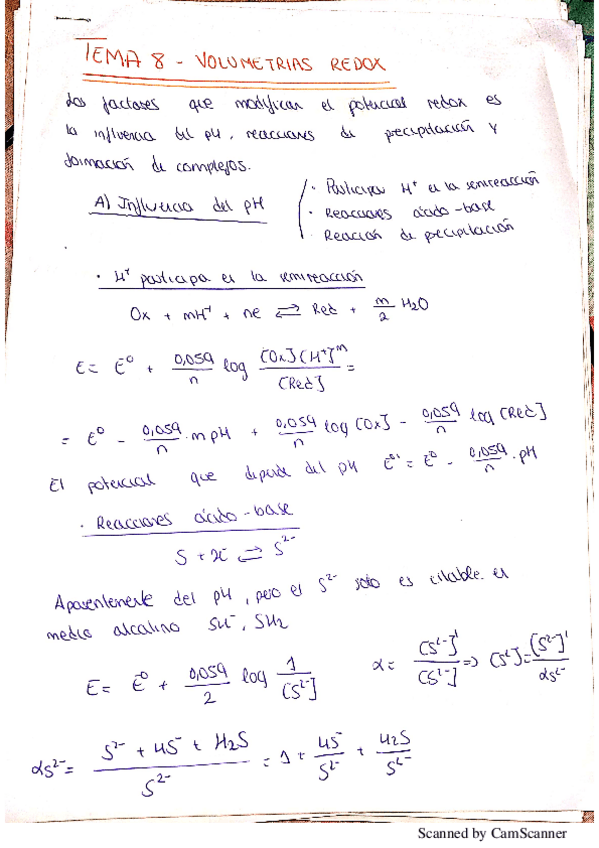 TEMA 8 - VOLUMETRIAS REDOX
Los factores que modifican el potencial redox es
la influencia del pH, reacciones de precipitación y
formación de complejos.
A) Influencia del pH
· Participa H⁺ en la semireacción
· Reacciones ácido-base
· Reacción de precipitación
· H⁺ participa en la semireacción
Ox + mH⁺ + ne ⇌ Red + m/2 H₂O
E = E⁰ + 0,059/n log [Ox][H⁺]ᵐ/[Red] =
= E⁰ - 0,059/n · m pH + 0,059/n log [Ox] - 0,059/n log [Red]
El potencial que depende del pH E⁰' = E⁰ - 0,059/n · pH
· Reacciones ácido-base
S + 2e⁻ ⇌ S²⁻
Aparentemente del pH, pero el S²⁻ solo es estable en
medio alcalino SH⁻, SH₂
E = E⁰ + 0,059/2 log 1/[S²⁻] α = [S²⁻]'/[S²⁻] ⇒ [S²⁻] = [S²⁻]'/αs²⁻
αs²⁻ = S²⁻ + HS⁻ + H₂S/S²⁻ = 1 + HS⁻/S²⁻ + H₂S/S²⁻
Scanned by CamScanner